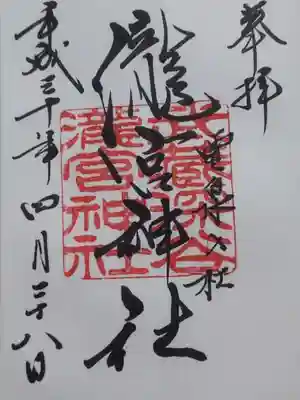 奉拝
武蔵深谷
瀧宮神社
瀧宮神社
平成三十年四月二十八日